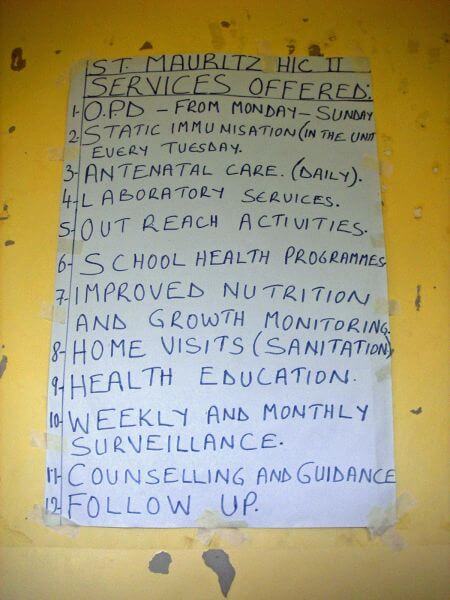 ST. MAURITZ H/C II
SERVICES OFFERED:
1- O.P.D - FROM MONDAY - SUNDAY
2- STATIC IMMUNISATION (IN THE UNIT
EVERY TUESDAY.
3- ANTENATAL CARE. (DAILY).
4- LABORATORY SERVICES.
5- OUT REACH ACTIVITIES.
6- SCHOOL HEALTH PROGRAMMES
7- IMPROVED NUTRITION
AND GROWTH MONITORING.
8- HOME VISITS (SANITATION)
9- HEALTH EDUCATION.
10- WEEKLY AND MONTHLY
SURVEILLANCE.
11- COUNSELLING AND GUIDANCE
12- FOLLOW UP.